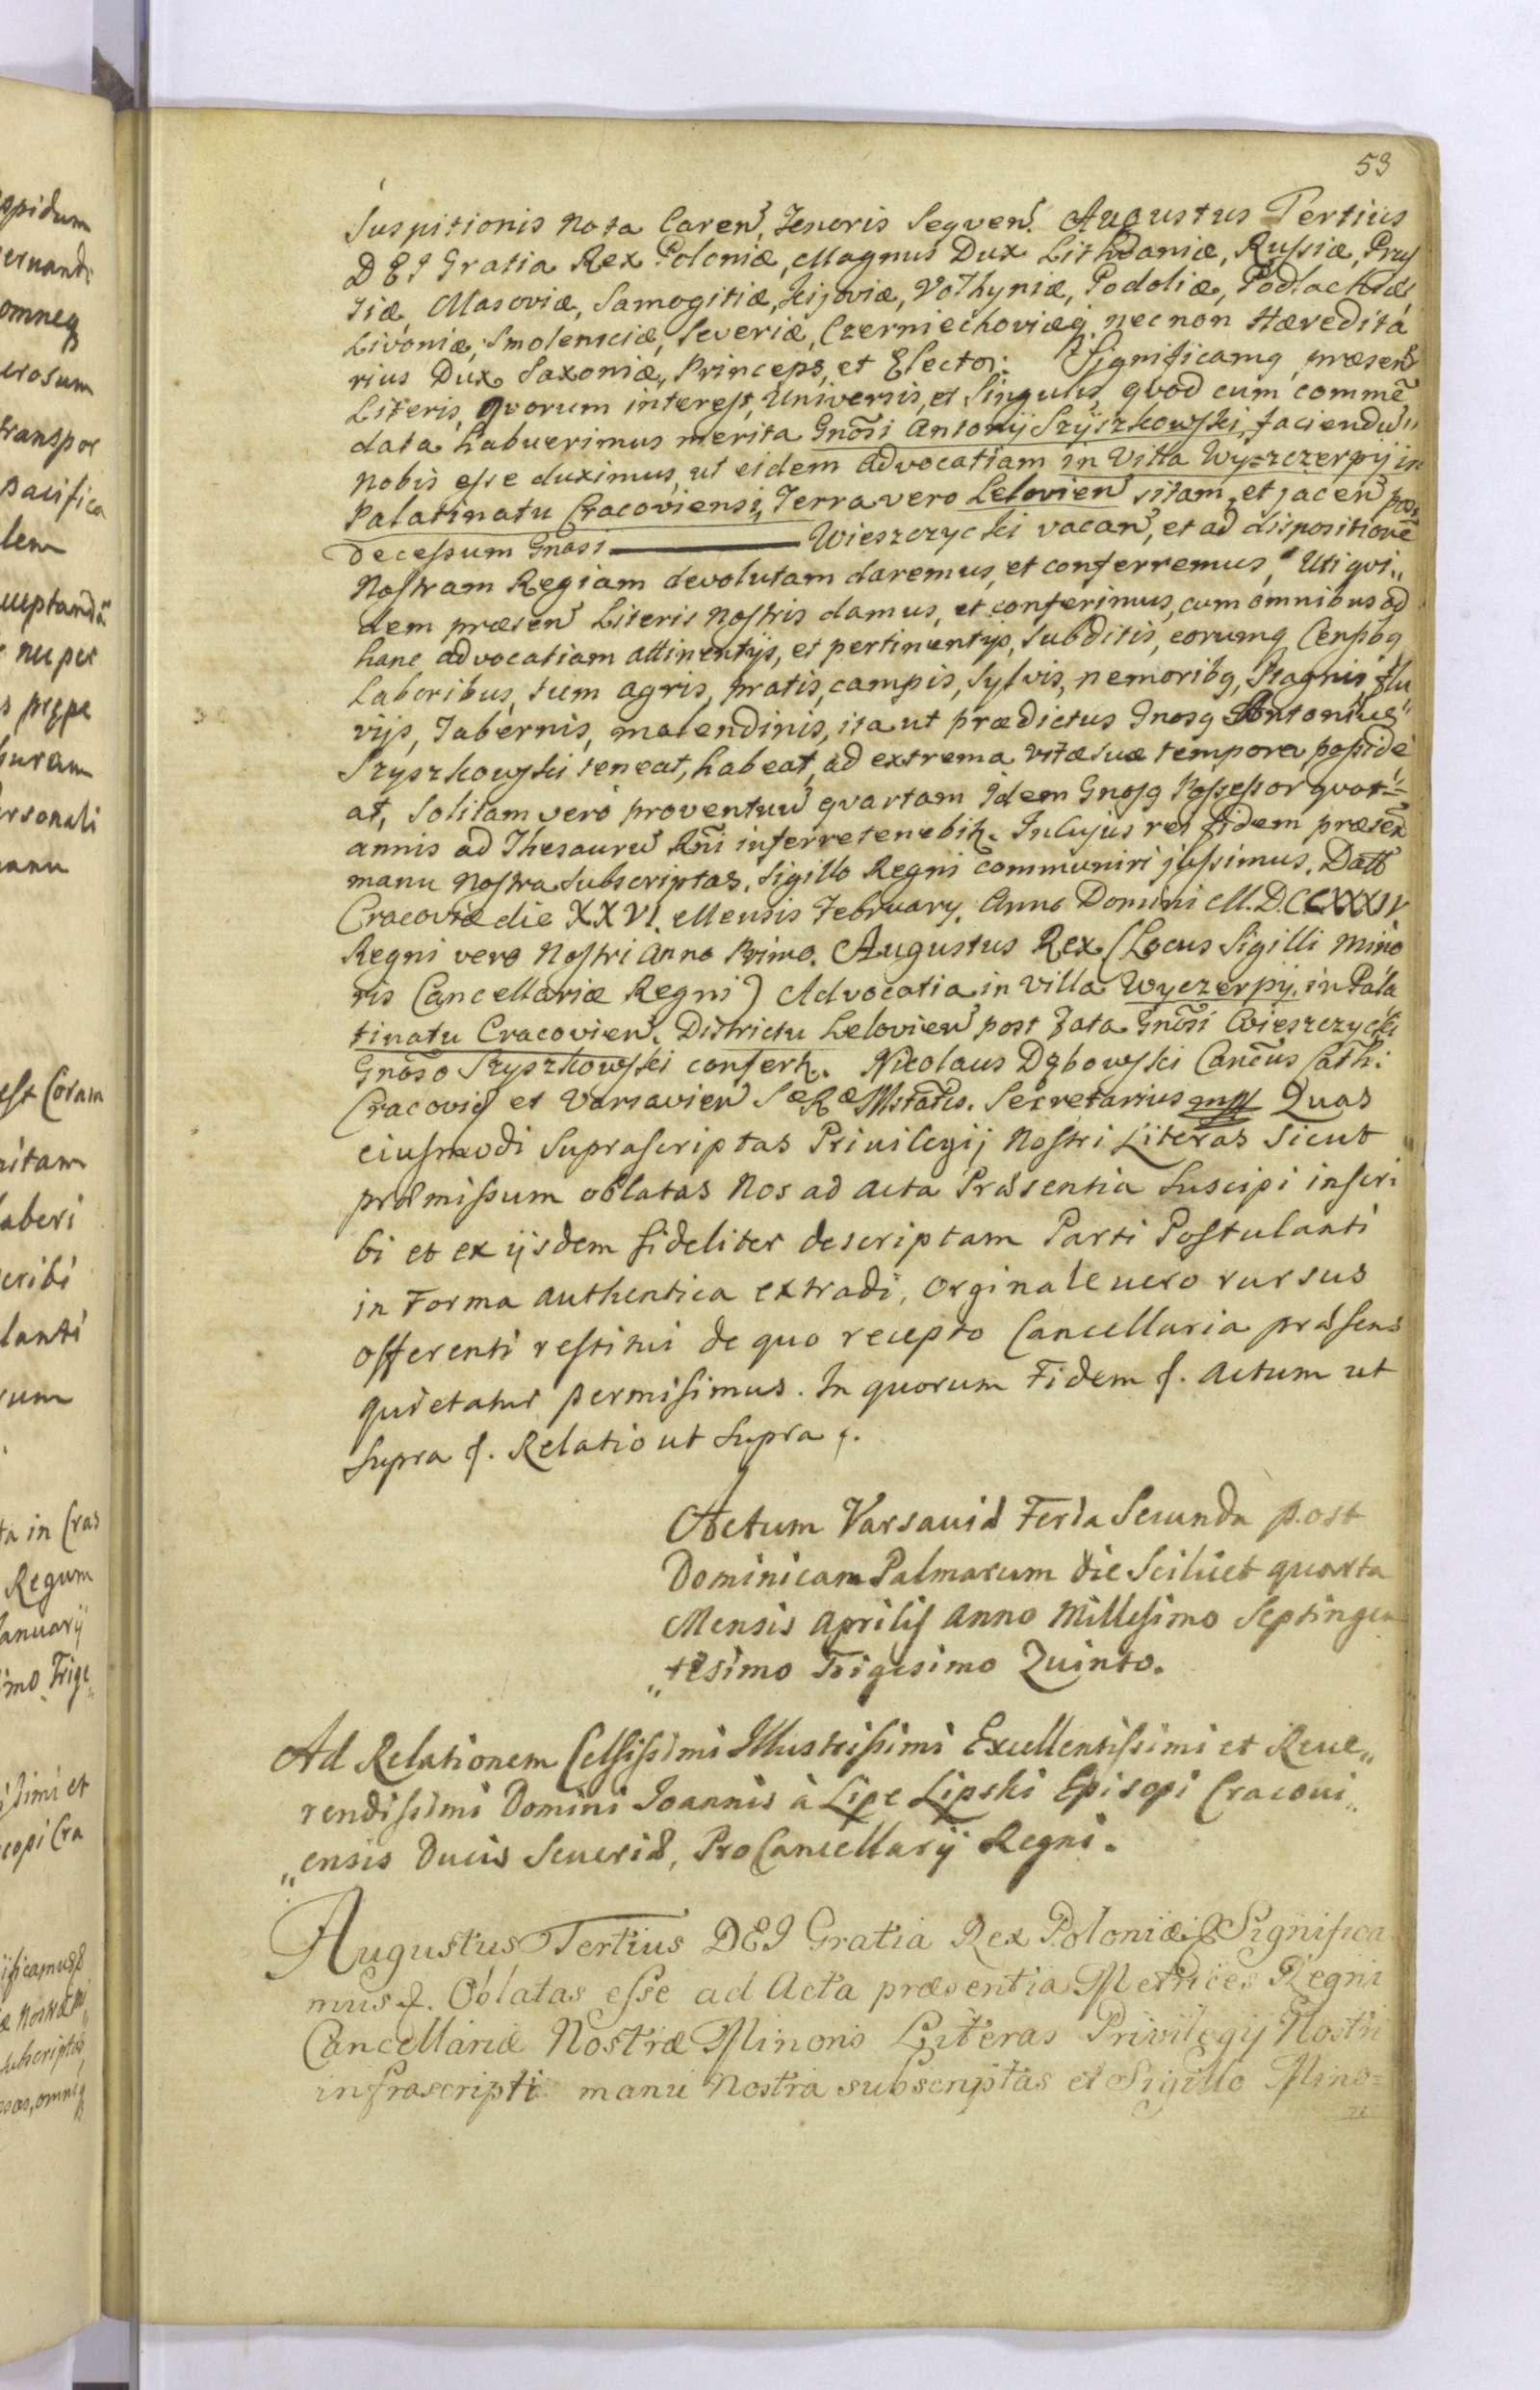 53
Suspitionis nota Caren, Tenoris Seqven. Augustus Tertius
DEI Gratia Rex Poloniæ, Magnus Dux Lithvaniæ, Russiæ, Prus
siæ, Masoviæ, Samogitiæ, Kijoviæ, Volhyniæ, Podoliæ, Podlachiæ,
Livoniæ, Smolensciæ, Severiæ, Czerniechoviæq nec non Hæredita
rius Dux Saxoniæ, Princeps, et Elector. Significamq præsen
Literis, qvorum interest, Universis, et Singulis, qvod cum commē
data habuerimus merita Gnōsi Antonij Szyszkowski, faciendū
nobis esse duximus, ut eidem advocatiam in Villa Wyszczerpij in
Palatinatu Cracoviensi, Terra vero Lelovien sitam, et jacen post
decessum Gnosi ——— Wieszczycki vacan, et ad dispositionē
Nostram Regiam devolutam daremus, et conferremus, Uti qvi„
dem præsen Literis Nostris damus, et conferimus, cum omnibus ad
hanc advocatiam attinentijs, et pertinentijs, subditis, eorumq Censibq
Laboribus, tum agris, pratis, campis, Sylvis, nemoribq, Stagnis, flu
vijs, Tabernis, molendinis, ita ut prædictus Gnosq Antonius
Szyszkowski teneat, habeat, ad extrema vitæ suæ tempora posside
at, Solitam verò proventuū qvartam Idem Gnosq Possessor qvot=
annis ad Thesaurū Rñi inferre tenebit. In Cujus rei fidem præsen
manu Nostra Subscriptas, Sigillo Regni communiri jussimus. Datt
Cracoviæ die XXVI. Mensis February. Anno Domini M.D.CCXXXIV
Regni vero Nostri Anno Primo. Augustus Rex. (Locus Sigilli Mino
ris Cancellariæ Regni) Advocatia in Villa Wyczerpij. in Pala
tinatu Cracovien. Districtu Lelovien post fata Gnōsi Wieszczycki
Gnōso Szyszkowski confert. Nicolaus Dębowski Cancūs Cath:
Cracovię et Varsavien SæRæMstatis. Secretarius mp Quas
eiusmodi Suprascriptas Priuilegij Nostri Literas Sicut
præmissum oblatas Nos ad acta Præsentia Suscipi inscri
bi et ex ijsdem fideliter descriptam Parti Postulanti
in Forma authentica extradi, Orginale uero rursus
offerenti restitui de quo recepto Cancellaria præsens
quietatur permisimus. In quorum Fidem &. Actum ut
Supra &. Relatio ut Supra &.
Actum Varsauiæ Feria Secunda post
Dominicam Palmarum die Scilicet quarta
Mensis Aprilis Anno Millesimo Septingen
„tesimo Trigesimo Quinto.
Ad Relationem Celsissimi Illustrissimi Excellentissimi et Reue„
rendissimi Domini Joannis à Lipe Lipski Episopi Cracoui„
„ensis Ducis Seueriæ, ProCancellarij Regni.
Augustus Tertius DEI Gratia Rex Poloniæ & Significa
mus &. Oblatas esse ad Acta præsentia Metrices Regni
Cancellariæ Nostræ Minoris Literas Privilegij Nostri
infrascripti manu Nostra subscriptas et Sigillo Mino=